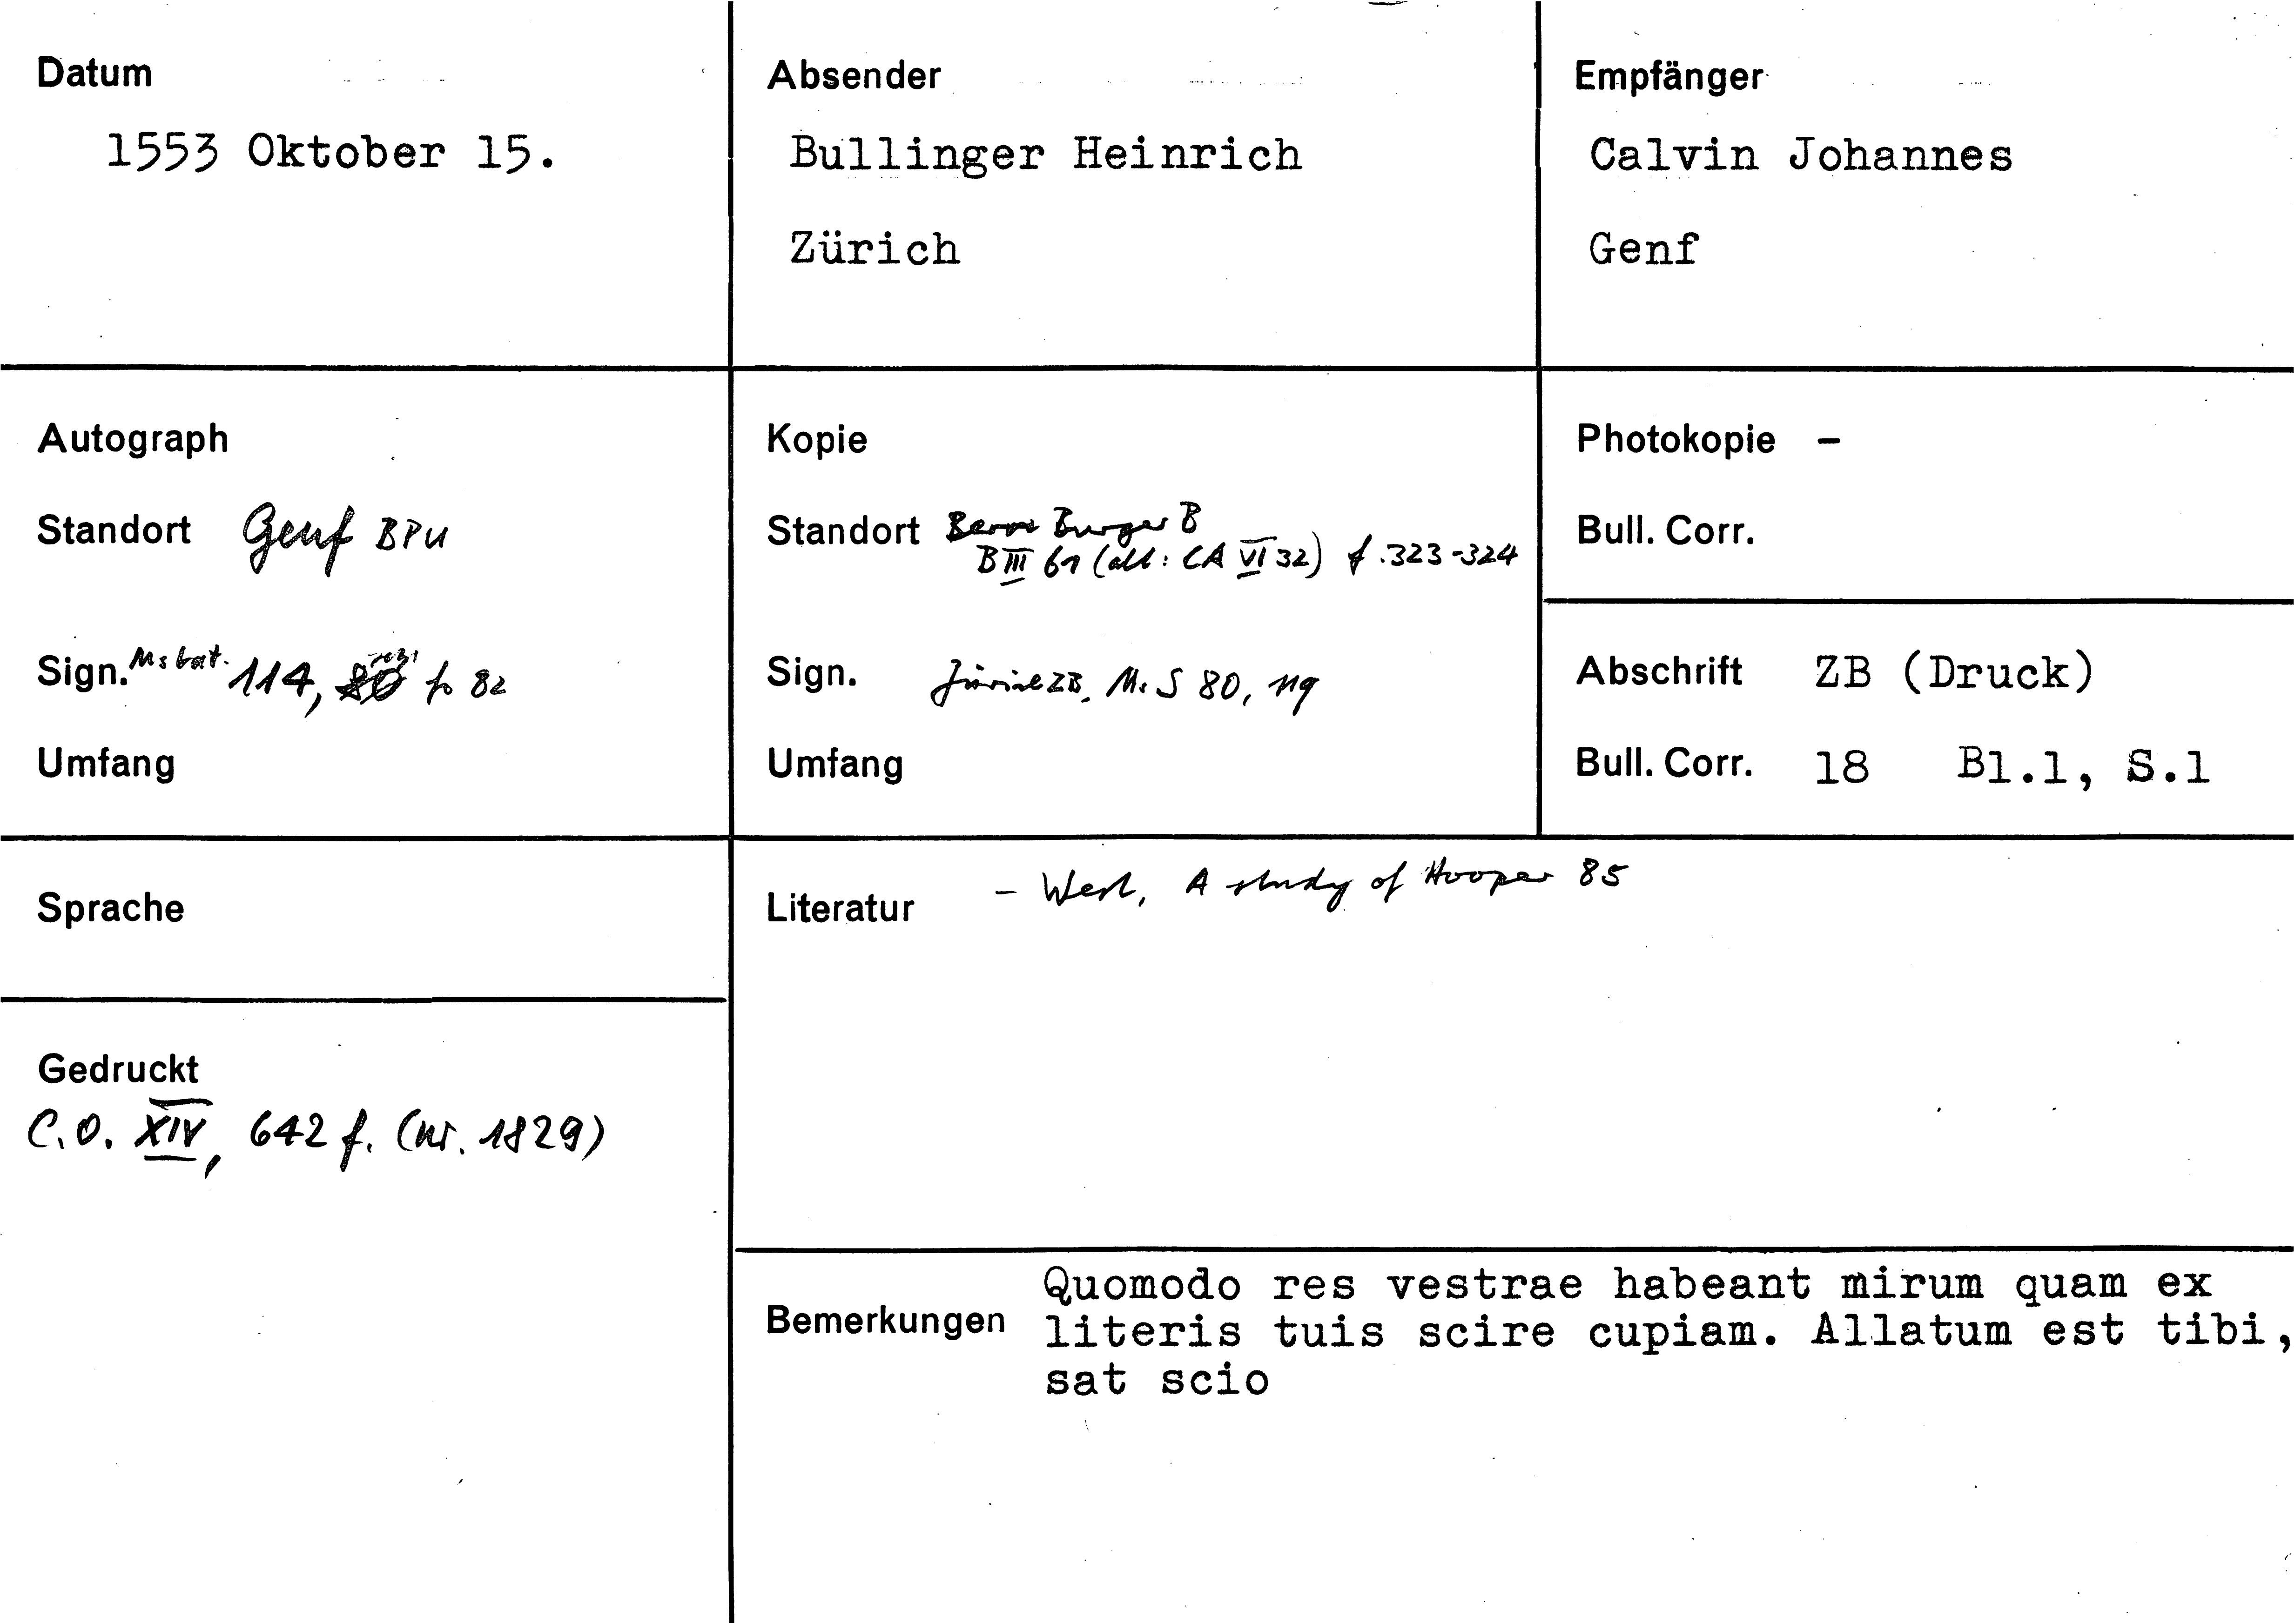 Datum
1553 Oktober 15.
Absender
Bullinger Heinrich
Zürich
Empfänger
Calvin Johannes
Genf
Autograph
Standort Genf BPU
Sign. Ms lat. 114, f° 82
Umfang
Kopie
Standort Bern Burger B
B III 61 (alt: CA VI 32) f. 323-324
Sign. Zürich ZB, Ms S 80, 119
Umfang
Photokopie -
Bull. Corr.
Abschrift ZB (Druck)
Bull. Corr. 18 Bl.1, S.1
Sprache
Gedruckt
C.O. XIV, 642 f. (Nr. 1829)
Literatur - West, A study of Hooper 85
Bemerkungen
Quomodo res vestrae habeant mirum quam ex
literis tuis scire cupiam. Allatum est tibi,
sat scio